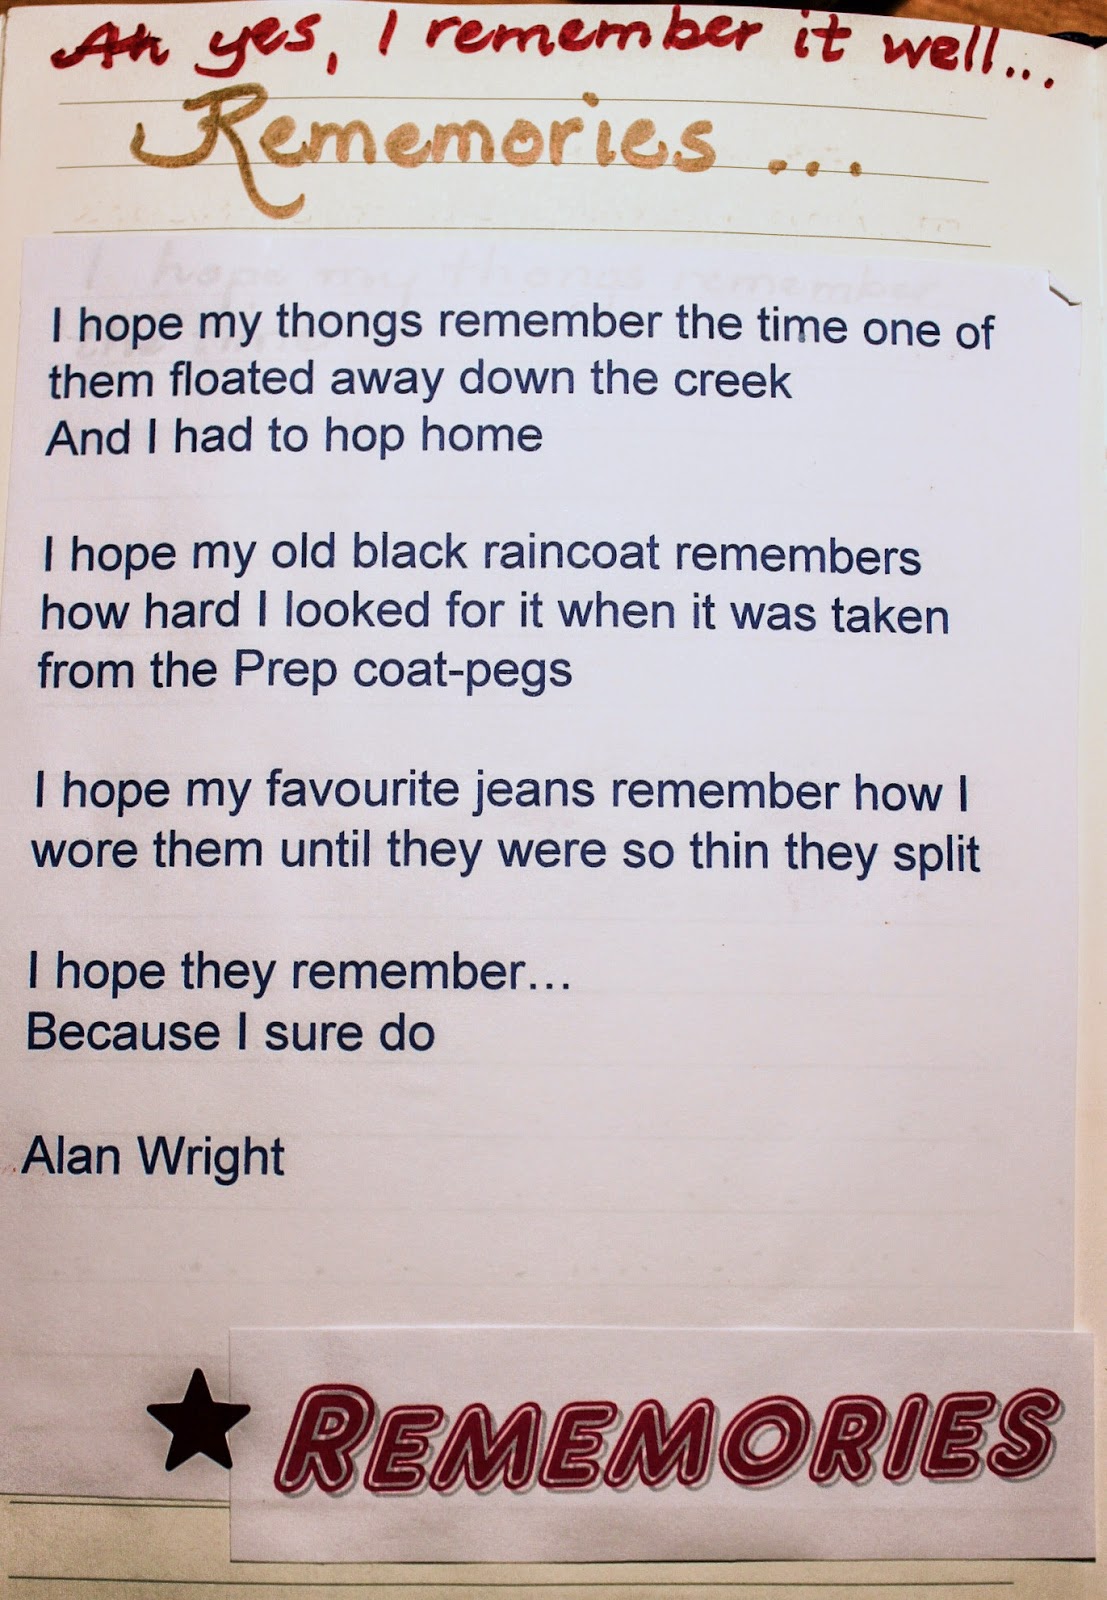 Ah yes, I remember it well...
Rememories ...
I hope my thongs remember
I hope my thongs remember the time one of
them floated away down the creek
And I had to hop home
I hope my old black raincoat remembers
how hard I looked for it when it was taken
from the Prep coat-pegs
I hope my favourite jeans remember how I
wore them until they were so thin they split
I hope they remember...
Because I sure do
Alan Wright
REMEMORIES